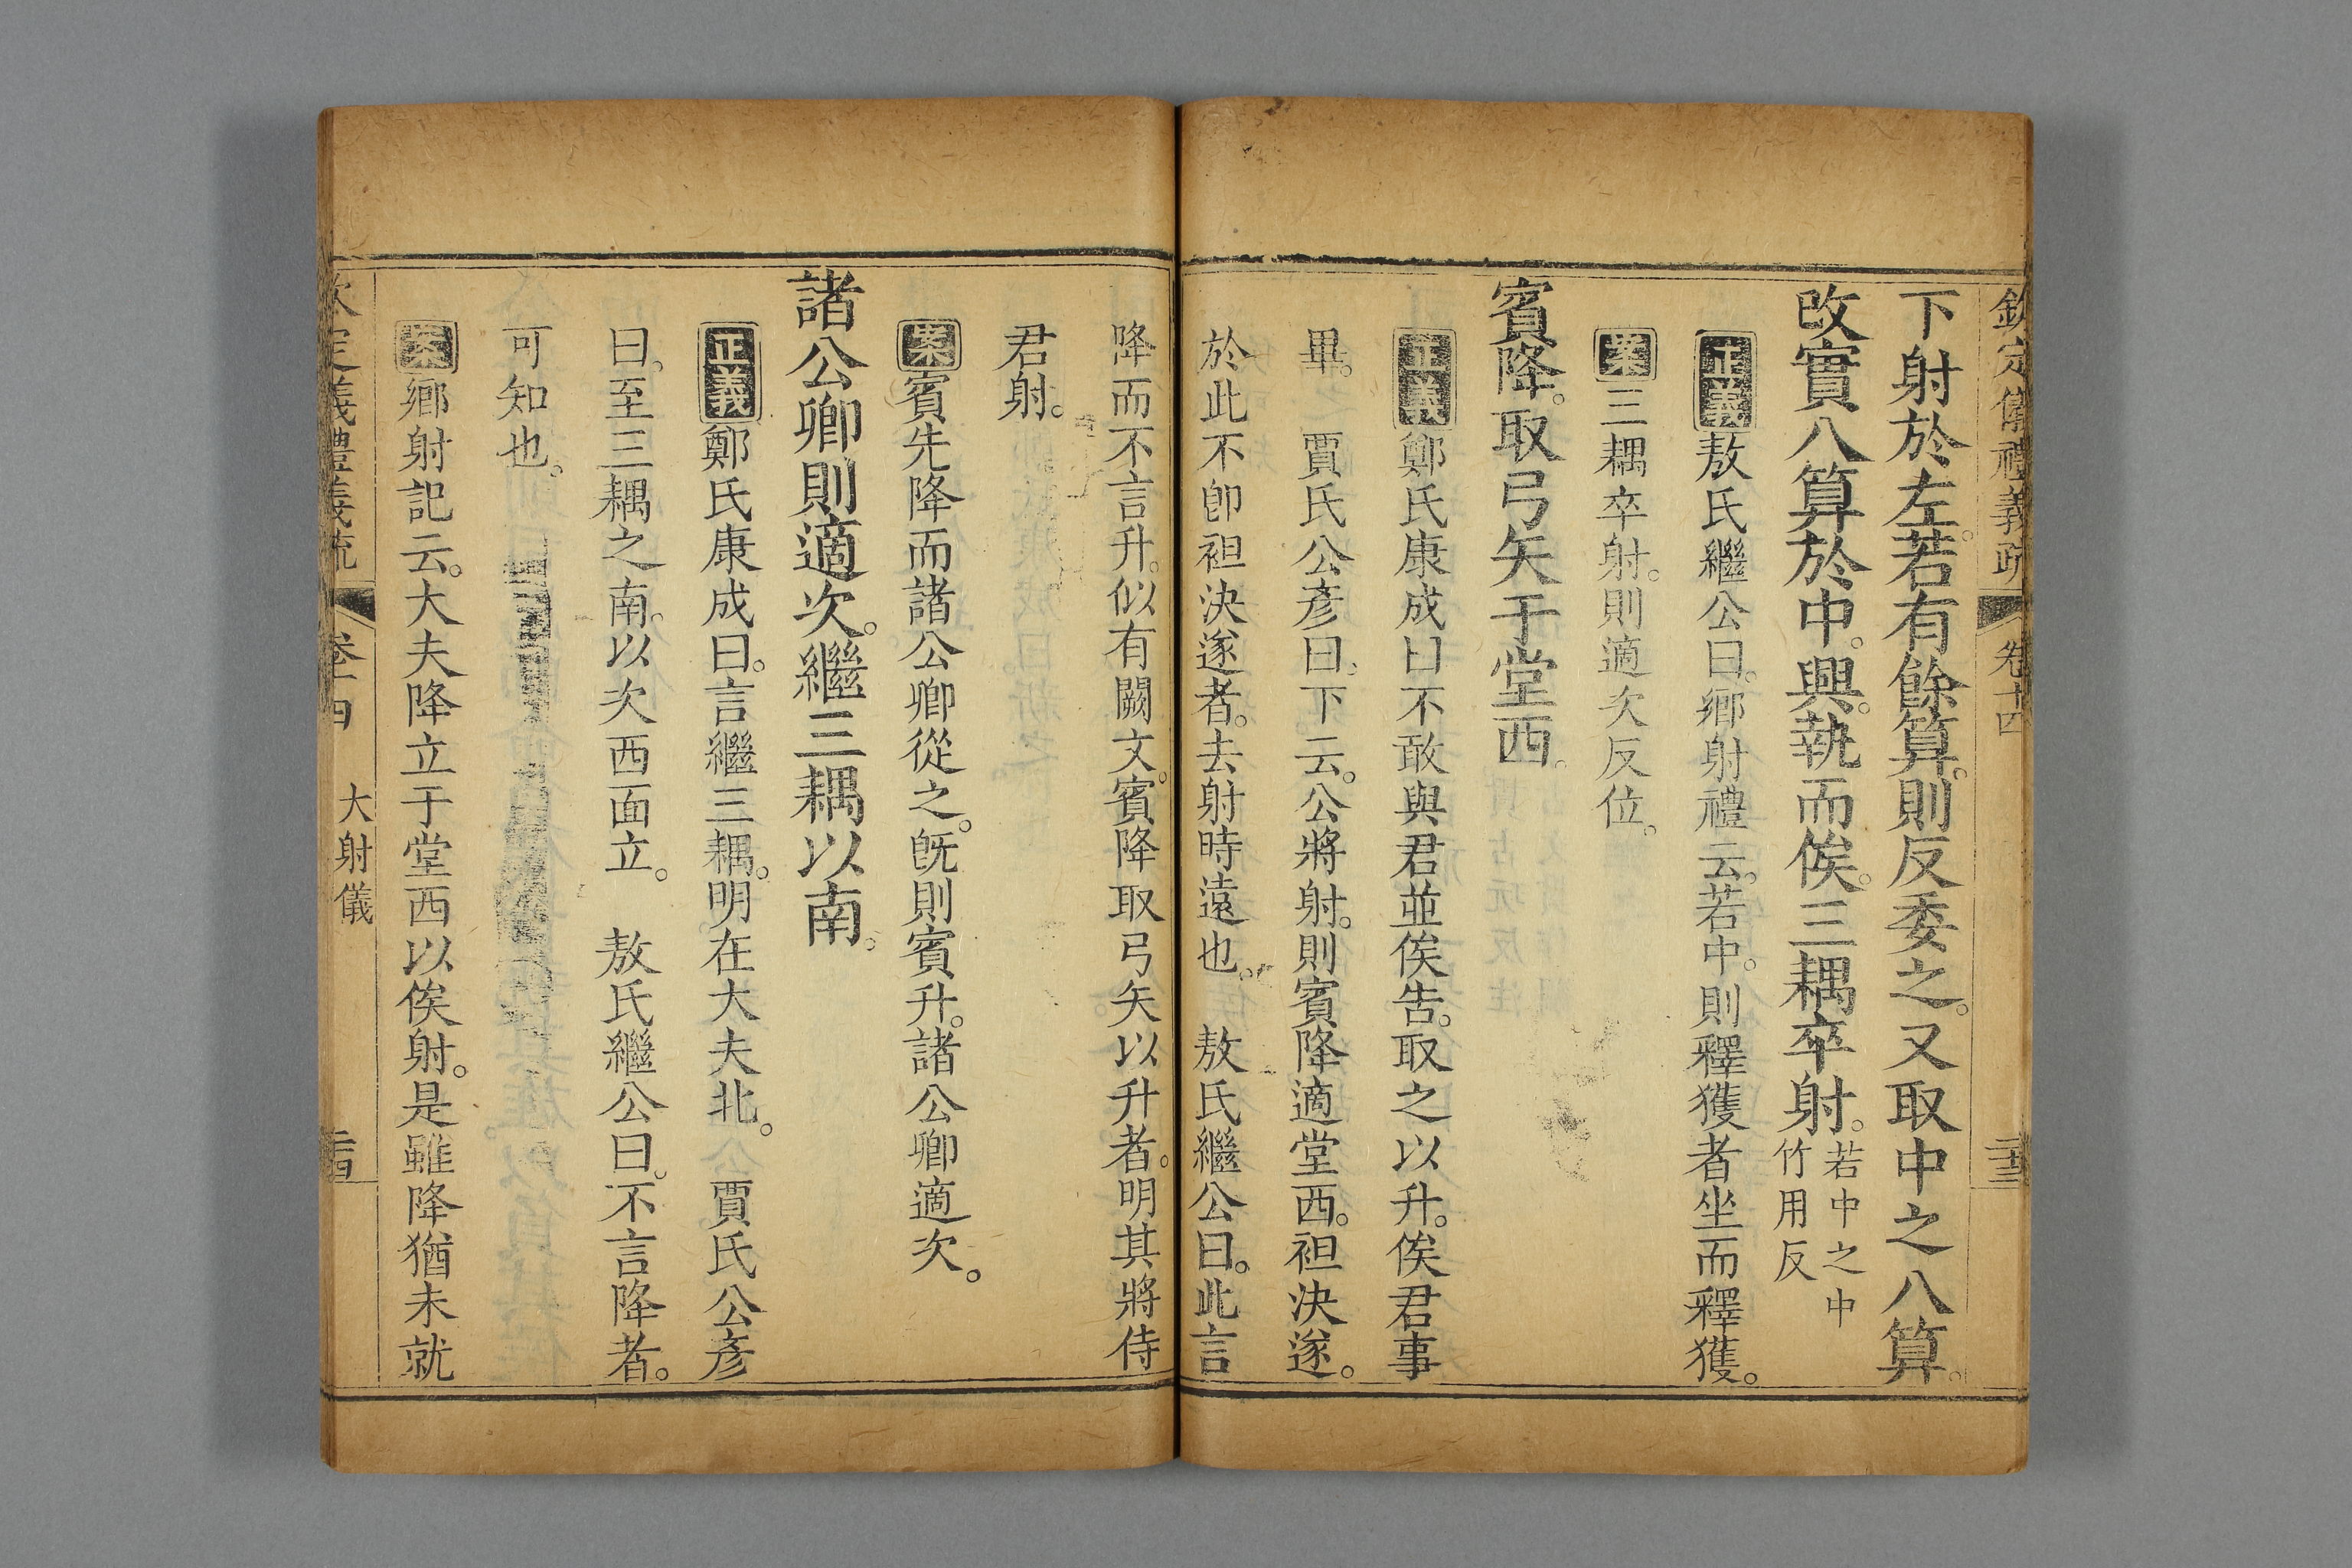 欽定儀禮義疏 卷十四
下射於左。若有餘算。則反委之。又取中之八算。
改實八算於中。興。執而俟。三耦卒射。若中之中
竹用反
正義敖氏繼公曰。鄉射禮云。若中。則釋獲者坐而釋獲。
案三耦卒射。則適次反位。
賓降。取弓矢于堂西。
正義鄭氏康成曰不敢與君並俟告。取之以升。俟君事
畢。 賈氏公彥曰。下云。公將射。則賓降適堂西。袒決遂。
於此不卽袒決遂者。去射時遠也。 敖氏繼公曰。此言
降而不言升。似有闕文。賓降取弓矢以升者。明其將侍
君射。
案賓先降而諸公卿從之。旣則賓升。諸公卿適次。
諸公卿則適次。繼三耦以南。
正義鄭氏康成曰。言繼三耦。明在大夫北。 賈氏公彥
曰。至三耦之南。以次西面立。 敖氏繼公曰。不言降者。
可知也。
案鄉射記云。大夫降立于堂西以俟射。是雖降猶未就
大射儀